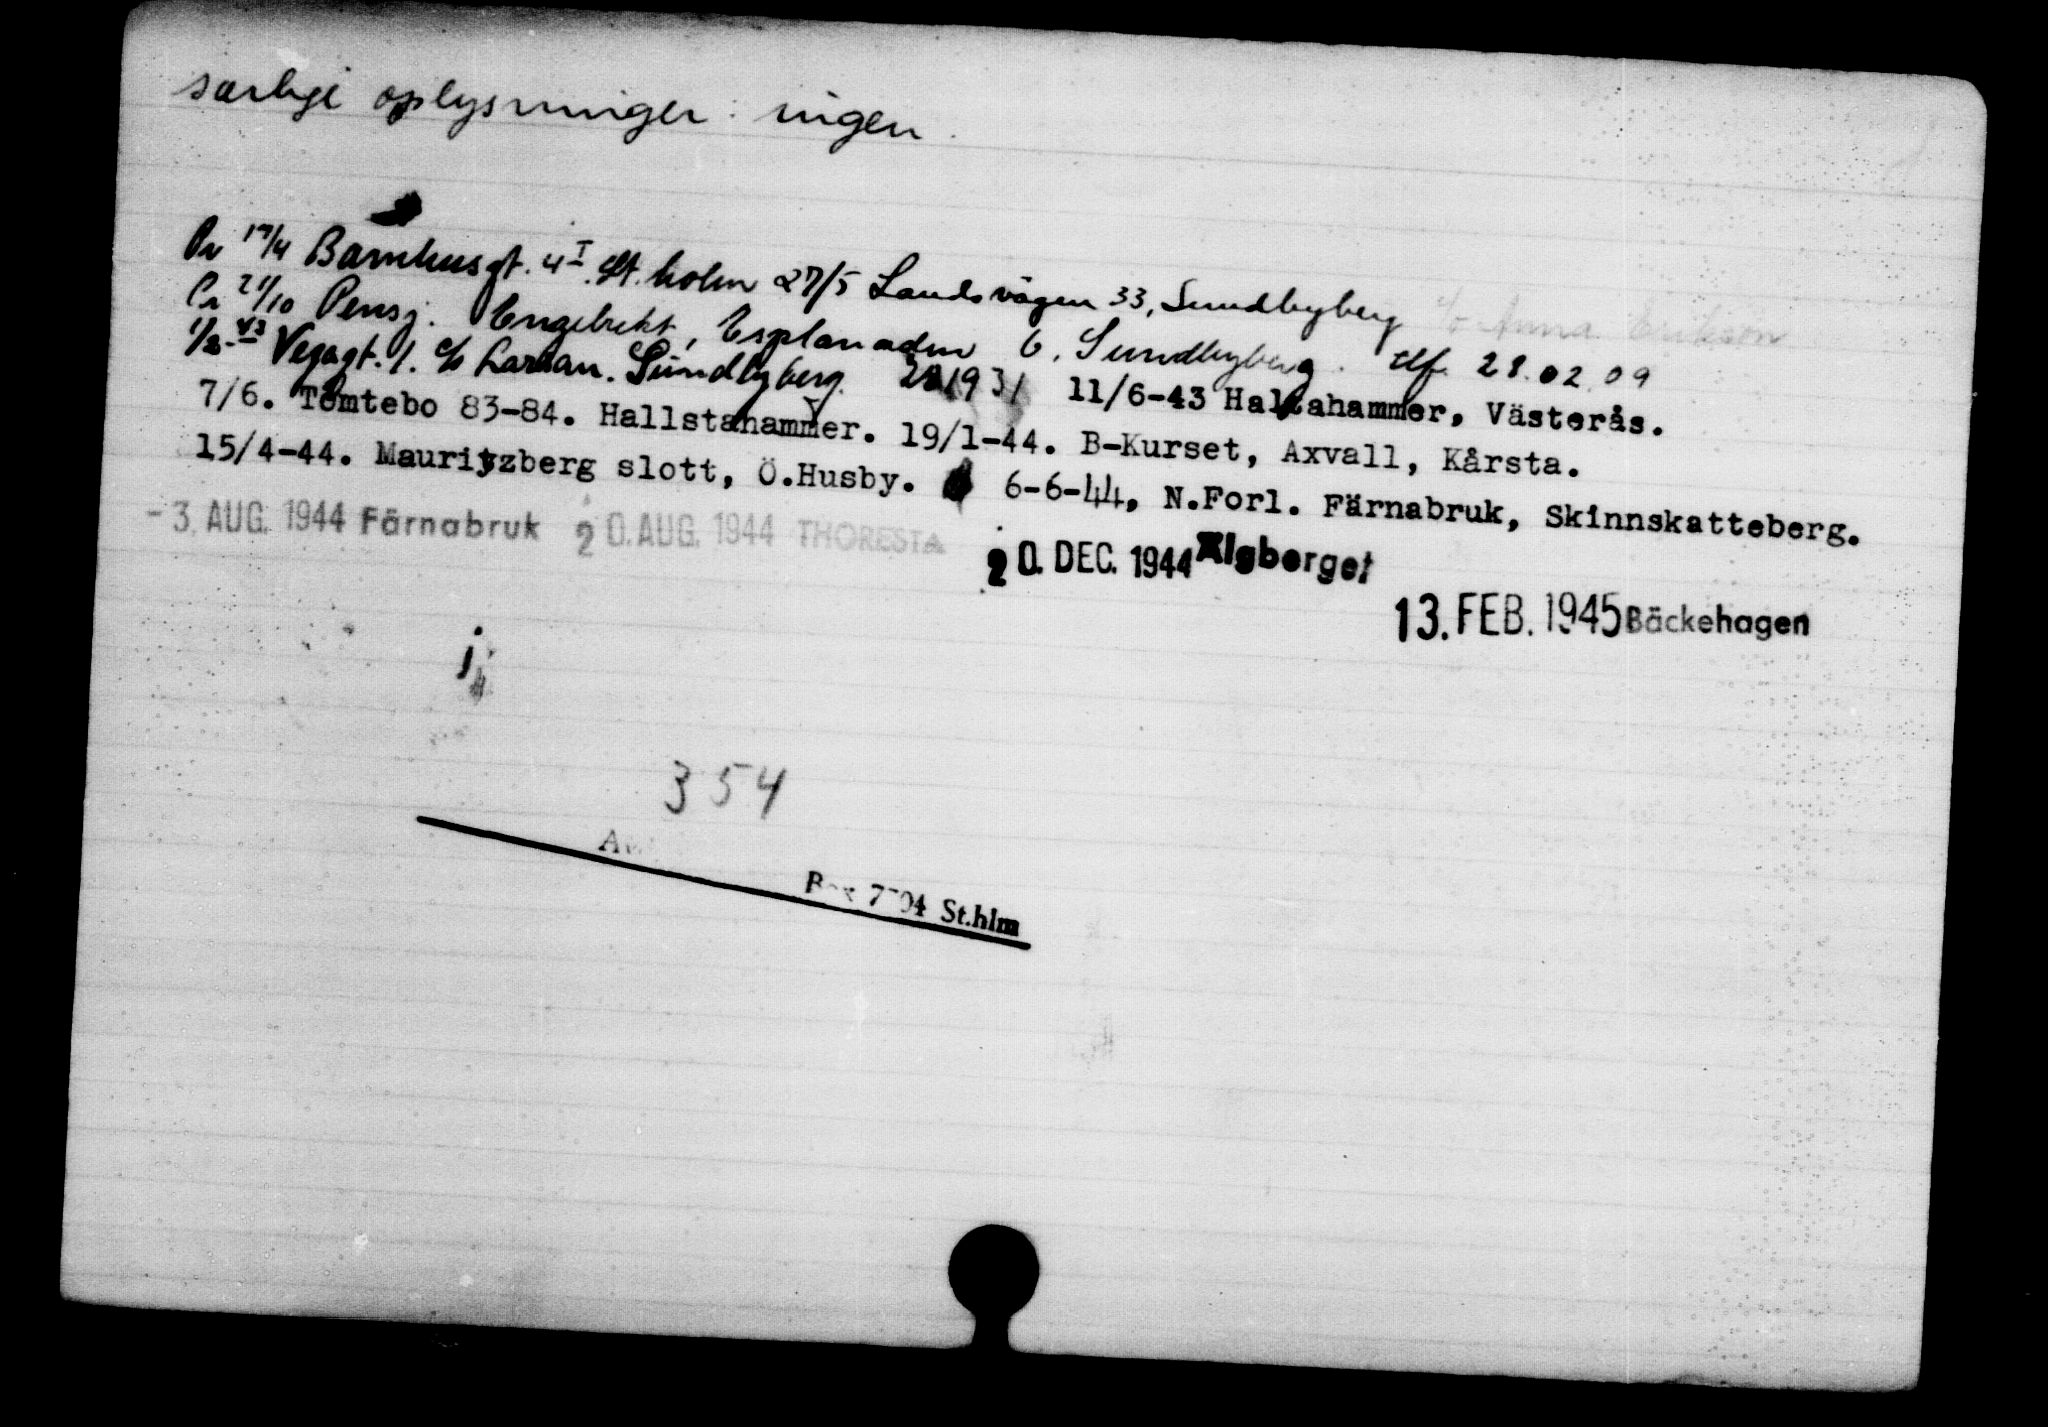 særlige oplysninger: ingen.
Pr 17/4 Barnhusgt. 4 I. St.holm 27/5 Landsvägen 33, Sundbyberg c/o Anna Erikson
Pr 21/10 Pensj. Engelbrekt, Esplanaden 6, Sundbyberg. tlf. 28.02.09
1/2-43 Vegagt. 1. c/o Larsan. Sundbyberg. 281931 11/6-43 Hallstahammer, Västerås.
7/6. Tomtebo 83-84. Hallstahammer. 19/1-44. B-Kurset, Axvall, Kårsta.
15/4-44. Mauritzberg slott, Ö.Husby. 6-6-44, N.Forl. Färnabruk, Skinnskatteberg.
-3. AUG. 1944 Färnabruk 20. AUG. 1944 THORESTA
20. DEC. 1944 Älgberget
13. FEB. 1945 Bäckehagen
354
St.hlm